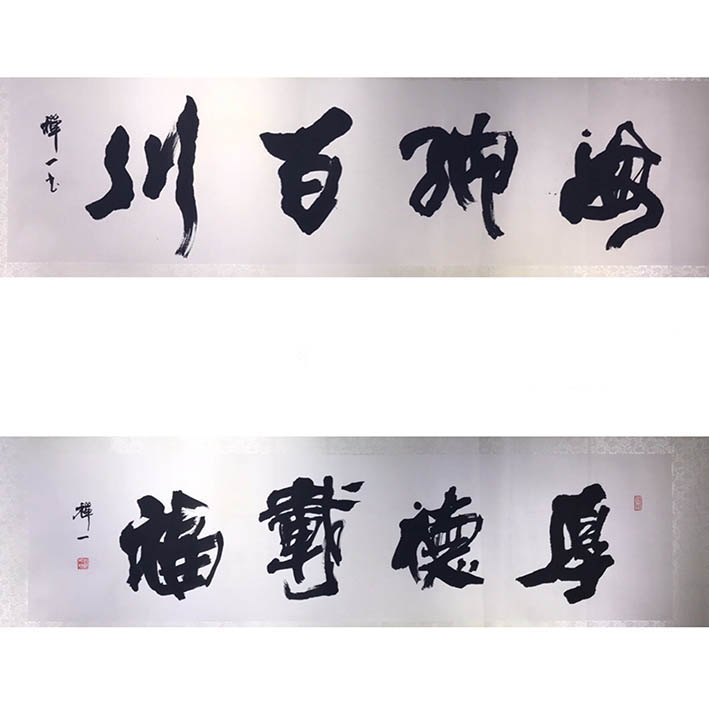 海納百川
禪一书
厚德載福
禪一